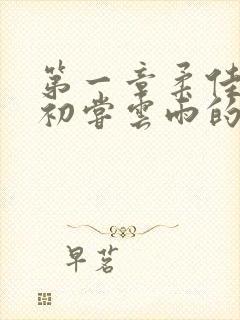 第一章柔佳
初尝雲雨的
早茗